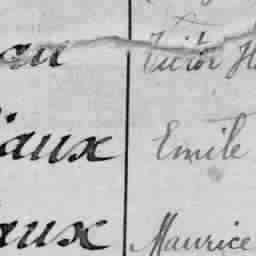 au Victor H
iaux Emile
aux Maurice